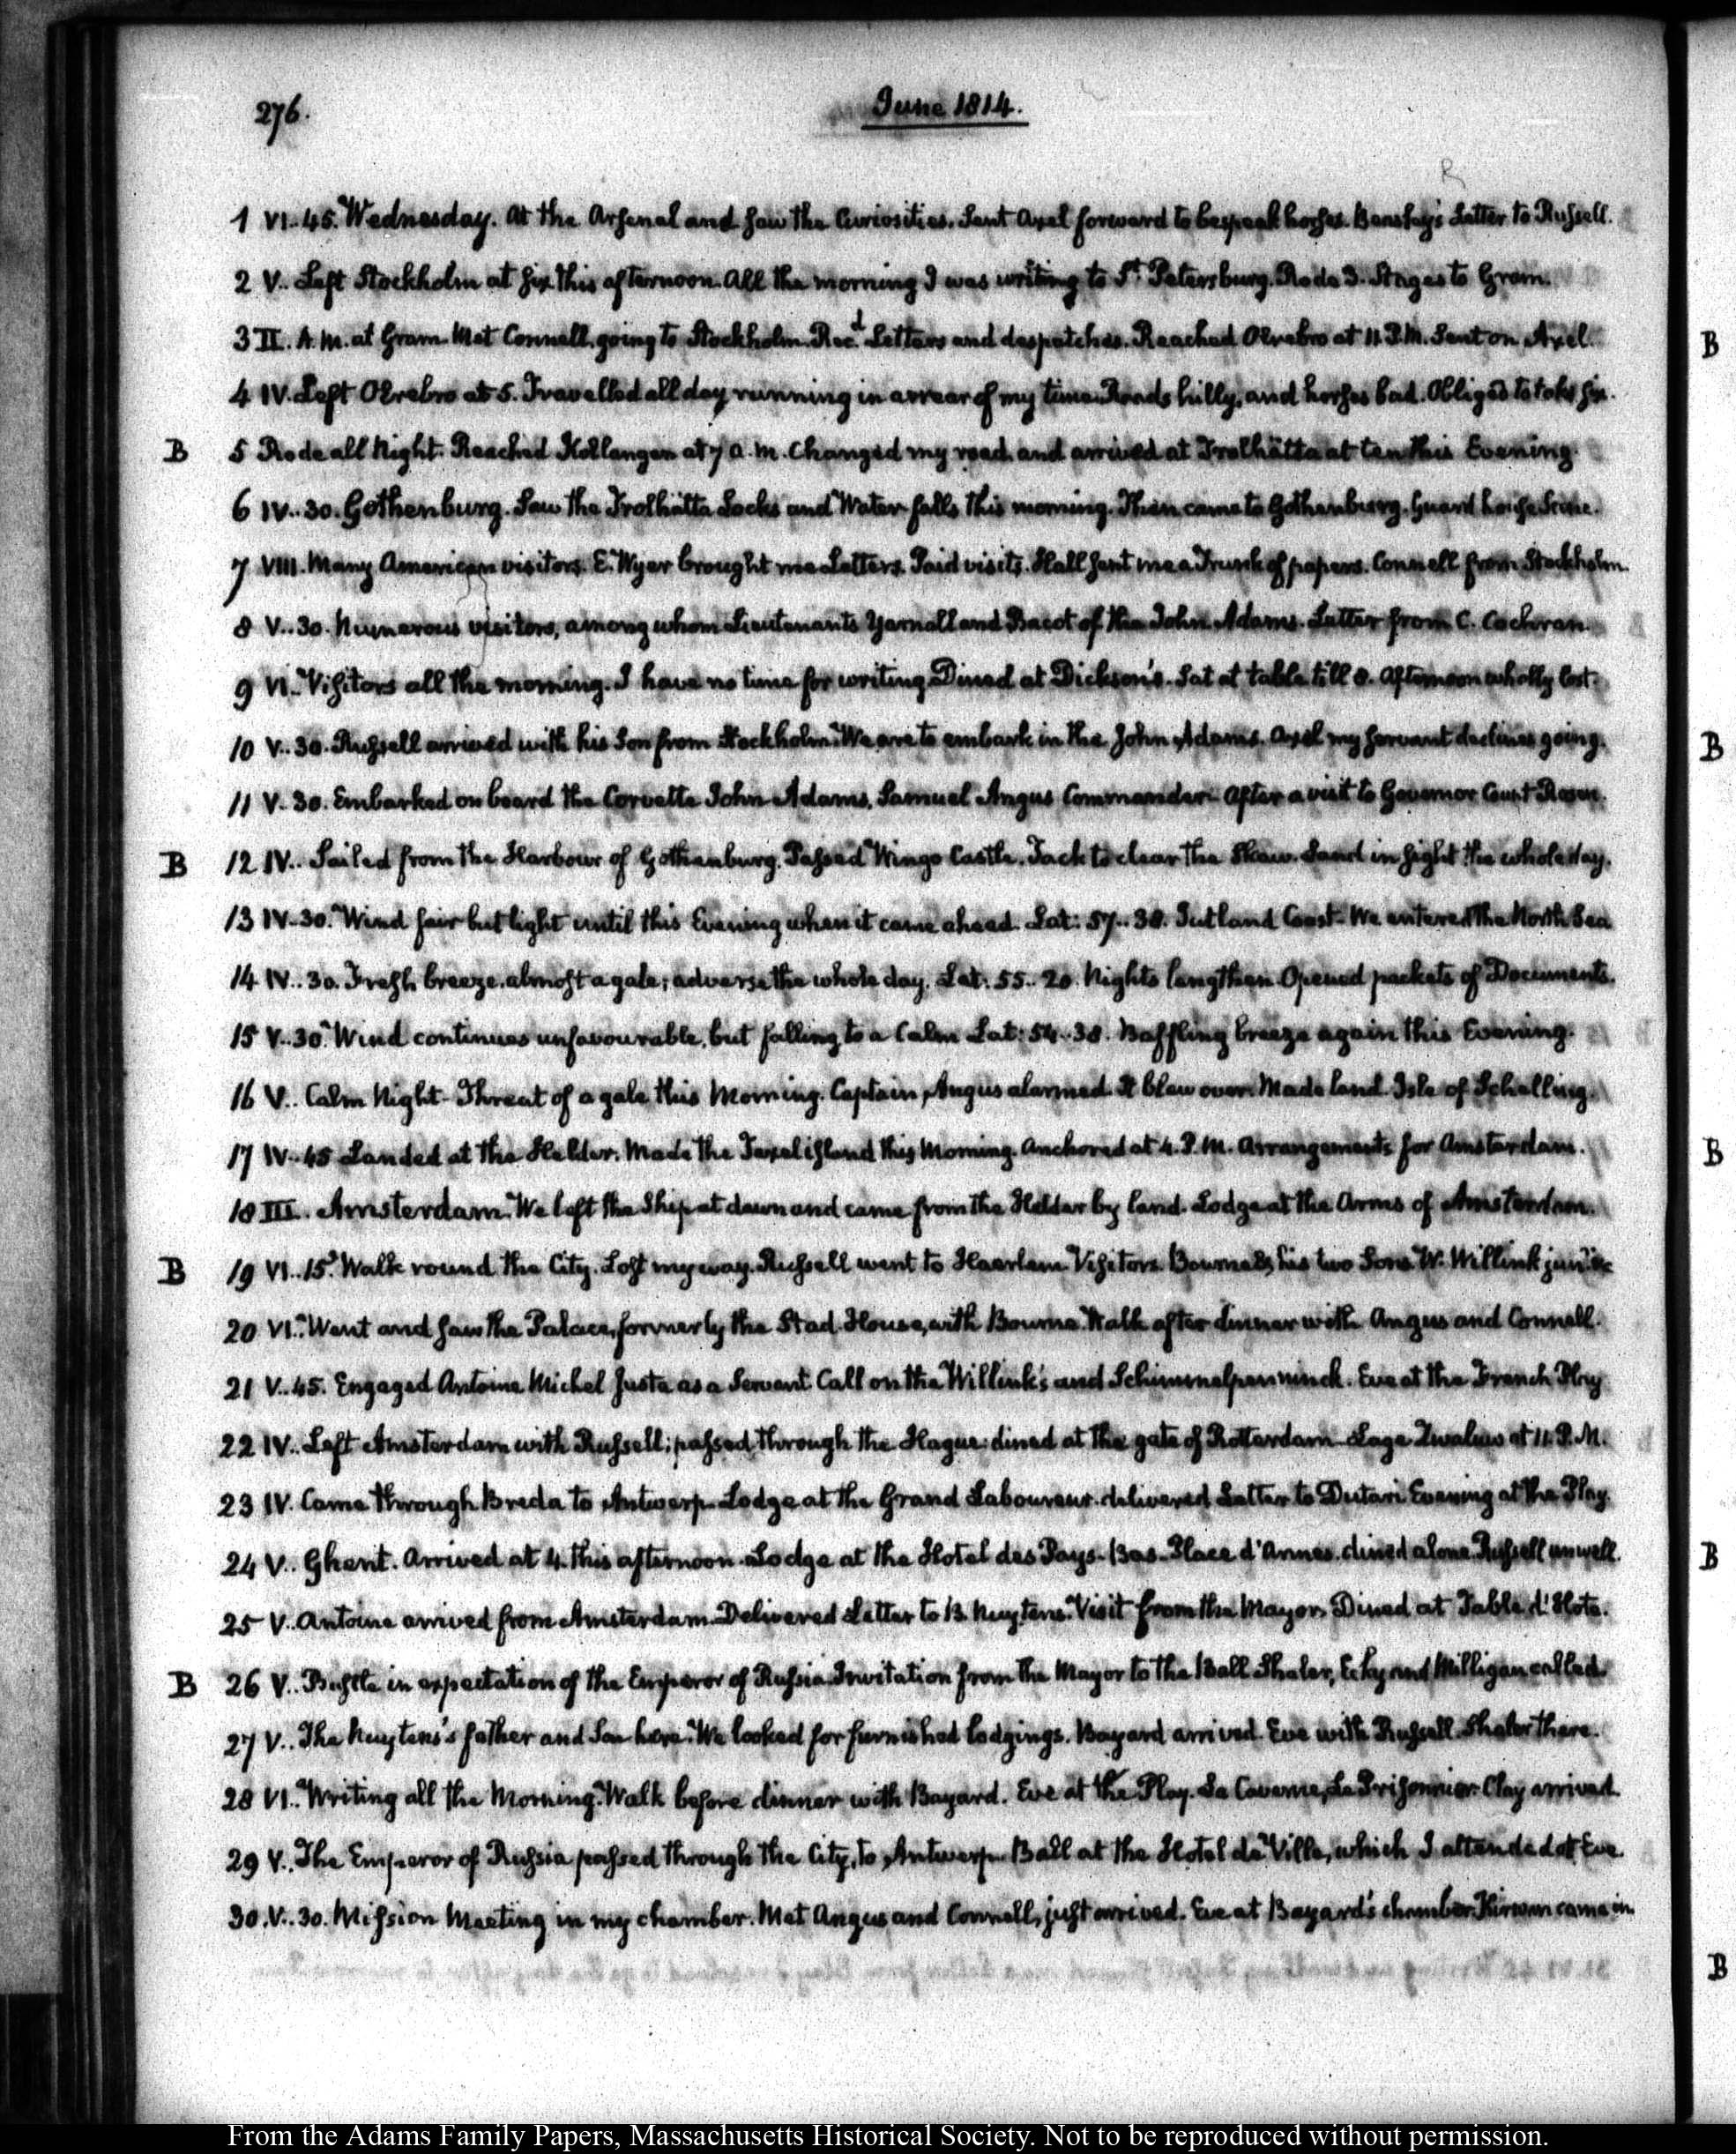 276.
June 1814.
1 VI..45. Wednesday. At the Arsenal and saw the Curiosities. Sent Axel forward to bespeak horses. Letter to Russell.
2 V.. Left Stockholm at six this afternoon. All the morning I was writing to St. Petersburg. Rode 3. Stages to Gram.
3 II. A.M. at Gram. Met Connell, going to Stockholm. Recd. Letters and despatches. Reached Olrebro at 11. P.M. Sent on Axel.
4 IV. Left Olrebro at 5. Travelled all day running in arrear of my time. Roads hilly, and horses bad. Obliged to take six.
B 5 Rode all Night. Reached at 7 a.m. Changed my road and arrived at Trolhätta at ten this Evening.
6 IV..30. Gothenburg. Saw the Trolhätta Locks and Water falls this morning. Then came to Gothenburg. Guard house Scene.
7 VIII. Many American visitors. E. Wyer brought me Letters. Paid visits. Hall sent me a Trunk of papers. Connell from Stockholm.
8 V..30. Numerous visitors, among whom Lieutenants Yarnall and Bacot of the John Adams. Letter from C. Cochran.
9 VI.. Visitors all the morning. I have no time for writing. Dined at Dickson's. Sat at table till 8. Afternoon wholly lost.
10 V..30. Russell arrived with his Son from Stockholm. We are to embark in the John Adams. Axel my servant declines going.
11 V..30. Embarked on board the Corvette John Adams, Samuel Angus Commander. After a visit to Governor Count Rosen.
B 12 IV.. Sailed from the Harbour of Gothenburg. Passed Wingo Castle. Tack to clear the Skaw. Land in sight the whole day.
13 IV..30. Wind fair but light until this Evening when it came ahead. Lat: 57..38. Jutland Coast. We entered the North Sea
14 IV..30. Fresh breeze, almost a gale; adverse the whole day. Lat: 55..20. Nights lengthen. Opened packets of Documents.
15 V..30. Wind continues unfavourable, but falling to a Calm Lat: 54..38. Baffling breeze again this Evening.
16 V.. Calm Night. Threat of a gale this Morning. Captain Angus alarmed. It blew over. Made land. Isle of Schelling.
17 IV..45 Landed at the Helder. Made the Texel island this Morning. Anchored at 4. P.M. Arrangements for Amsterdam.
18 III. Amsterdam. We left the Ship at dawn and came from the Helder by land. Lodge at the Arms of Amsterdam.
B 19 VI..15. Walk round the City. Lost my way. Russell went to Haerlem. Visitors. Bourne & his two Sons. W. Willink junr. &c
20 VI.. Went and saw the Palace, formerly the Stad House, with Bourne. Walk after dinner with Angus and Connell.
21 V..45. Engaged Antoine Michel Juste as a Servant. Call on the Willink's and Schimmelpenninck. Eve at the French Play
22 IV.. Left Amsterdam with Russell; passed through the Hague: dined at the gate of Rotterdam. Lage Zwaluw at 11. P.M.
23 IV. Came through Breda to Antwerp. Lodge at the Grand Laboureur. delivered Letter to Dutari Evening at the Play.
24 V.. Ghent. Arrived at 4. this afternoon. Lodge at the Hotel des Pays-Bas. Place d'Armes. dined alone. Russell unwell.
25 V.. Antoine arrived from Amsterdam. Delivered Letter to B. Nuytens. Visit from the Mayor. Dined at Table d'Hote.
B 26 V.. Bustle in expectation of the Emperor of Russia. Invitation from the Mayor to the Ball. Shaler, Ecky and Milligan called.
27 V.. The Nuytens's father and Son here. We looked for furnished lodgings. Bayard arrived. Eve with Russell. Shaler there.
28 VI.. Writing all the Morning. Walk before dinner with Bayard. Eve at the Play. La Caverne, Le Prisonnier. Clay arrived.
29 V.. The Emperor of Russia passed through the City, to Antwerp. Ball at the Hotel de Ville, which I attended at Eve.
30. V..30. Mission Meeting in my chamber. Met Angus and Connell, just arrived. Eve at Bayard's chamber. Kirwan came in.
B
B
B
B
B
From the Adams Family Papers, Massachusetts Historical Society. Not to be reproduced without permission.